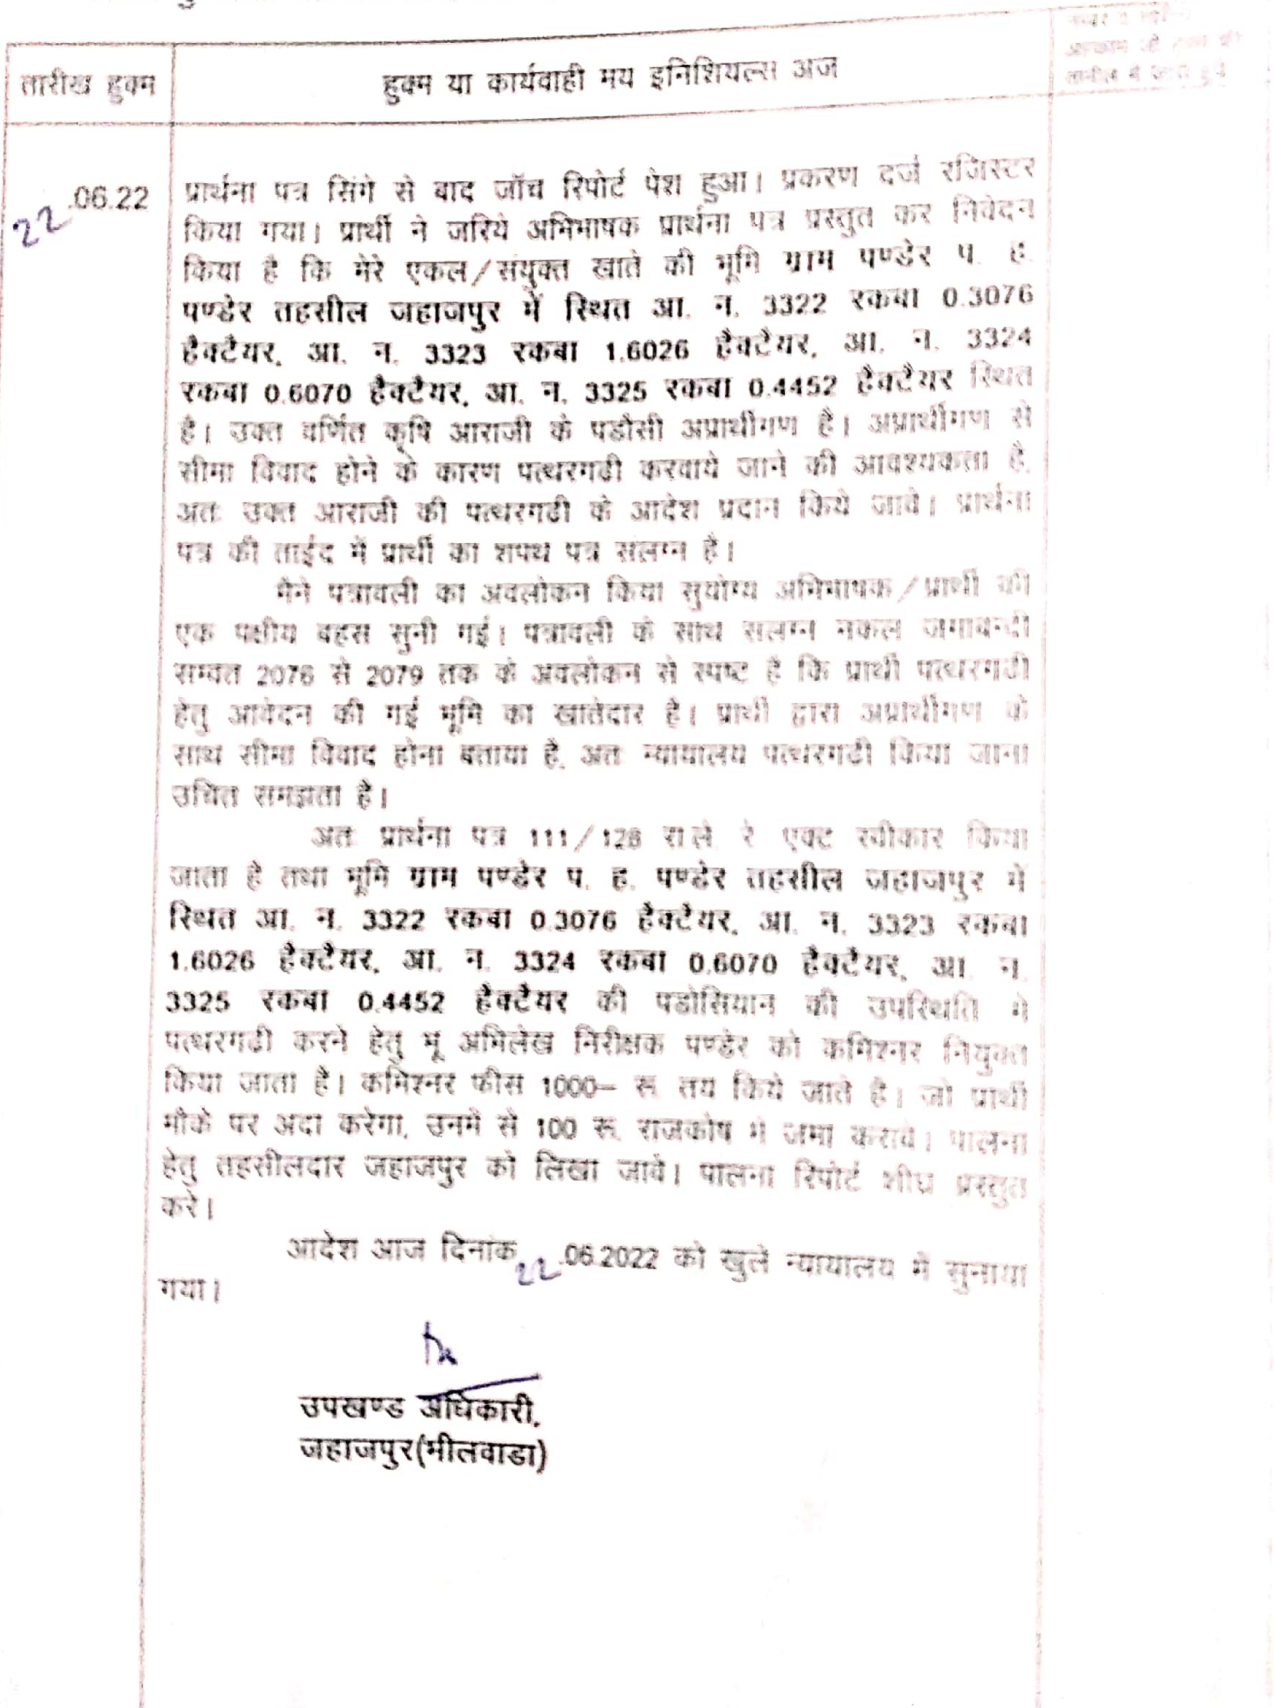 तारीख हुक्म
हुक्म या कार्यवाही मय इनिशियल्स अज
22.06.22
प्रार्थना पत्र सिंगे से बाद जॉच रिपोर्ट पेश हुआ। प्रकरण दर्ज रजिस्टर
किया गया। प्रार्थी ने जरिये अभिभाषक प्रार्थना पत्र प्रस्तुत कर निवेदन
किया है कि मेरे एकल/संयुक्त खाते की भूमि ग्राम पण्डेर प. ह.
पण्डेर तहसील जहाजपुर में स्थित आ. न. 3322 रकबा 0.3076
हैक्टैयर, आ. न. 3323 रकबा 1.6026 हैक्टैयर, आ. न. 3324
रकबा 0.6070 हैक्टैयर, आ. न. 3325 रकबा 0.4452 हैक्टैयर स्थित
है। उक्त वर्णित कृषि आराजी के पडौसी अप्रार्थीगण है। अप्रार्थीगण से
सीमा विवाद होने के कारण पत्थरगढी करवाये जाने की आवश्यकता है,
अतः उक्त आराजी की पत्थरगढी के आदेश प्रदान किये जावे। प्रार्थना
पत्र की ताईद में प्रार्थी का शपथ पत्र संलग्न है।
मैने पत्रावली का अवलोकन किया सुयोग्य अभिभाषक/प्रार्थी की
एक पक्षीय बहस सुनी गई। पत्रावली के साथ सलग्न नकल जमाबन्दी
सम्वत 2076 से 2079 तक के अवलोकन से स्पष्ट है कि प्रार्थी पत्थरगढी
हेतु आवेदन की गई भूमि का खातेदार है। प्रार्थी द्वारा अप्रार्थीगण के
साथ सीमा विवाद होना बताया है, अतः न्यायालय पत्थरगढी किया जाना
उचित समझता है।
अतः प्रार्थना पत्र 111/128 रा.ले. रे. एक्ट स्वीकार किया
जाता है तथा भूमि ग्राम पण्डेर प. ह. पण्डेर तहसील जहाजपुर में
स्थित आ. न. 3322 रकबा 0.3076 हैक्टैयर, आ. न. 3323 रकबा
1.6026 हैक्टैयर, आ. न. 3324 रकबा 0.6070 हैक्टैयर, आ. न.
3325 रकबा 0.4452 हैक्टैयर की पडोसियान की उपस्थिति मे
पत्थरगढी करने हेतु भू अभिलेख निरीक्षक पण्डेर को कमिश्नर नियुक्त
किया जाता है। कमिश्नर फीस 1000– रू तय किये जाते है। जो प्रार्थी
मौके पर अदा करेगा, उनमें से 100 रू. राजकोष में जमा करावे। पालना
हेतु तहसीलदार जहाजपुर को लिखा जावे। पालना रिपोर्ट शीघ्र प्रस्तुत
करे।
आदेश आज दिनांक 22.06.2022 को खुले न्यायालय में सुनाया
गया।
उपखण्ड अधिकारी,
जहाजपुर(भीलवाडा)